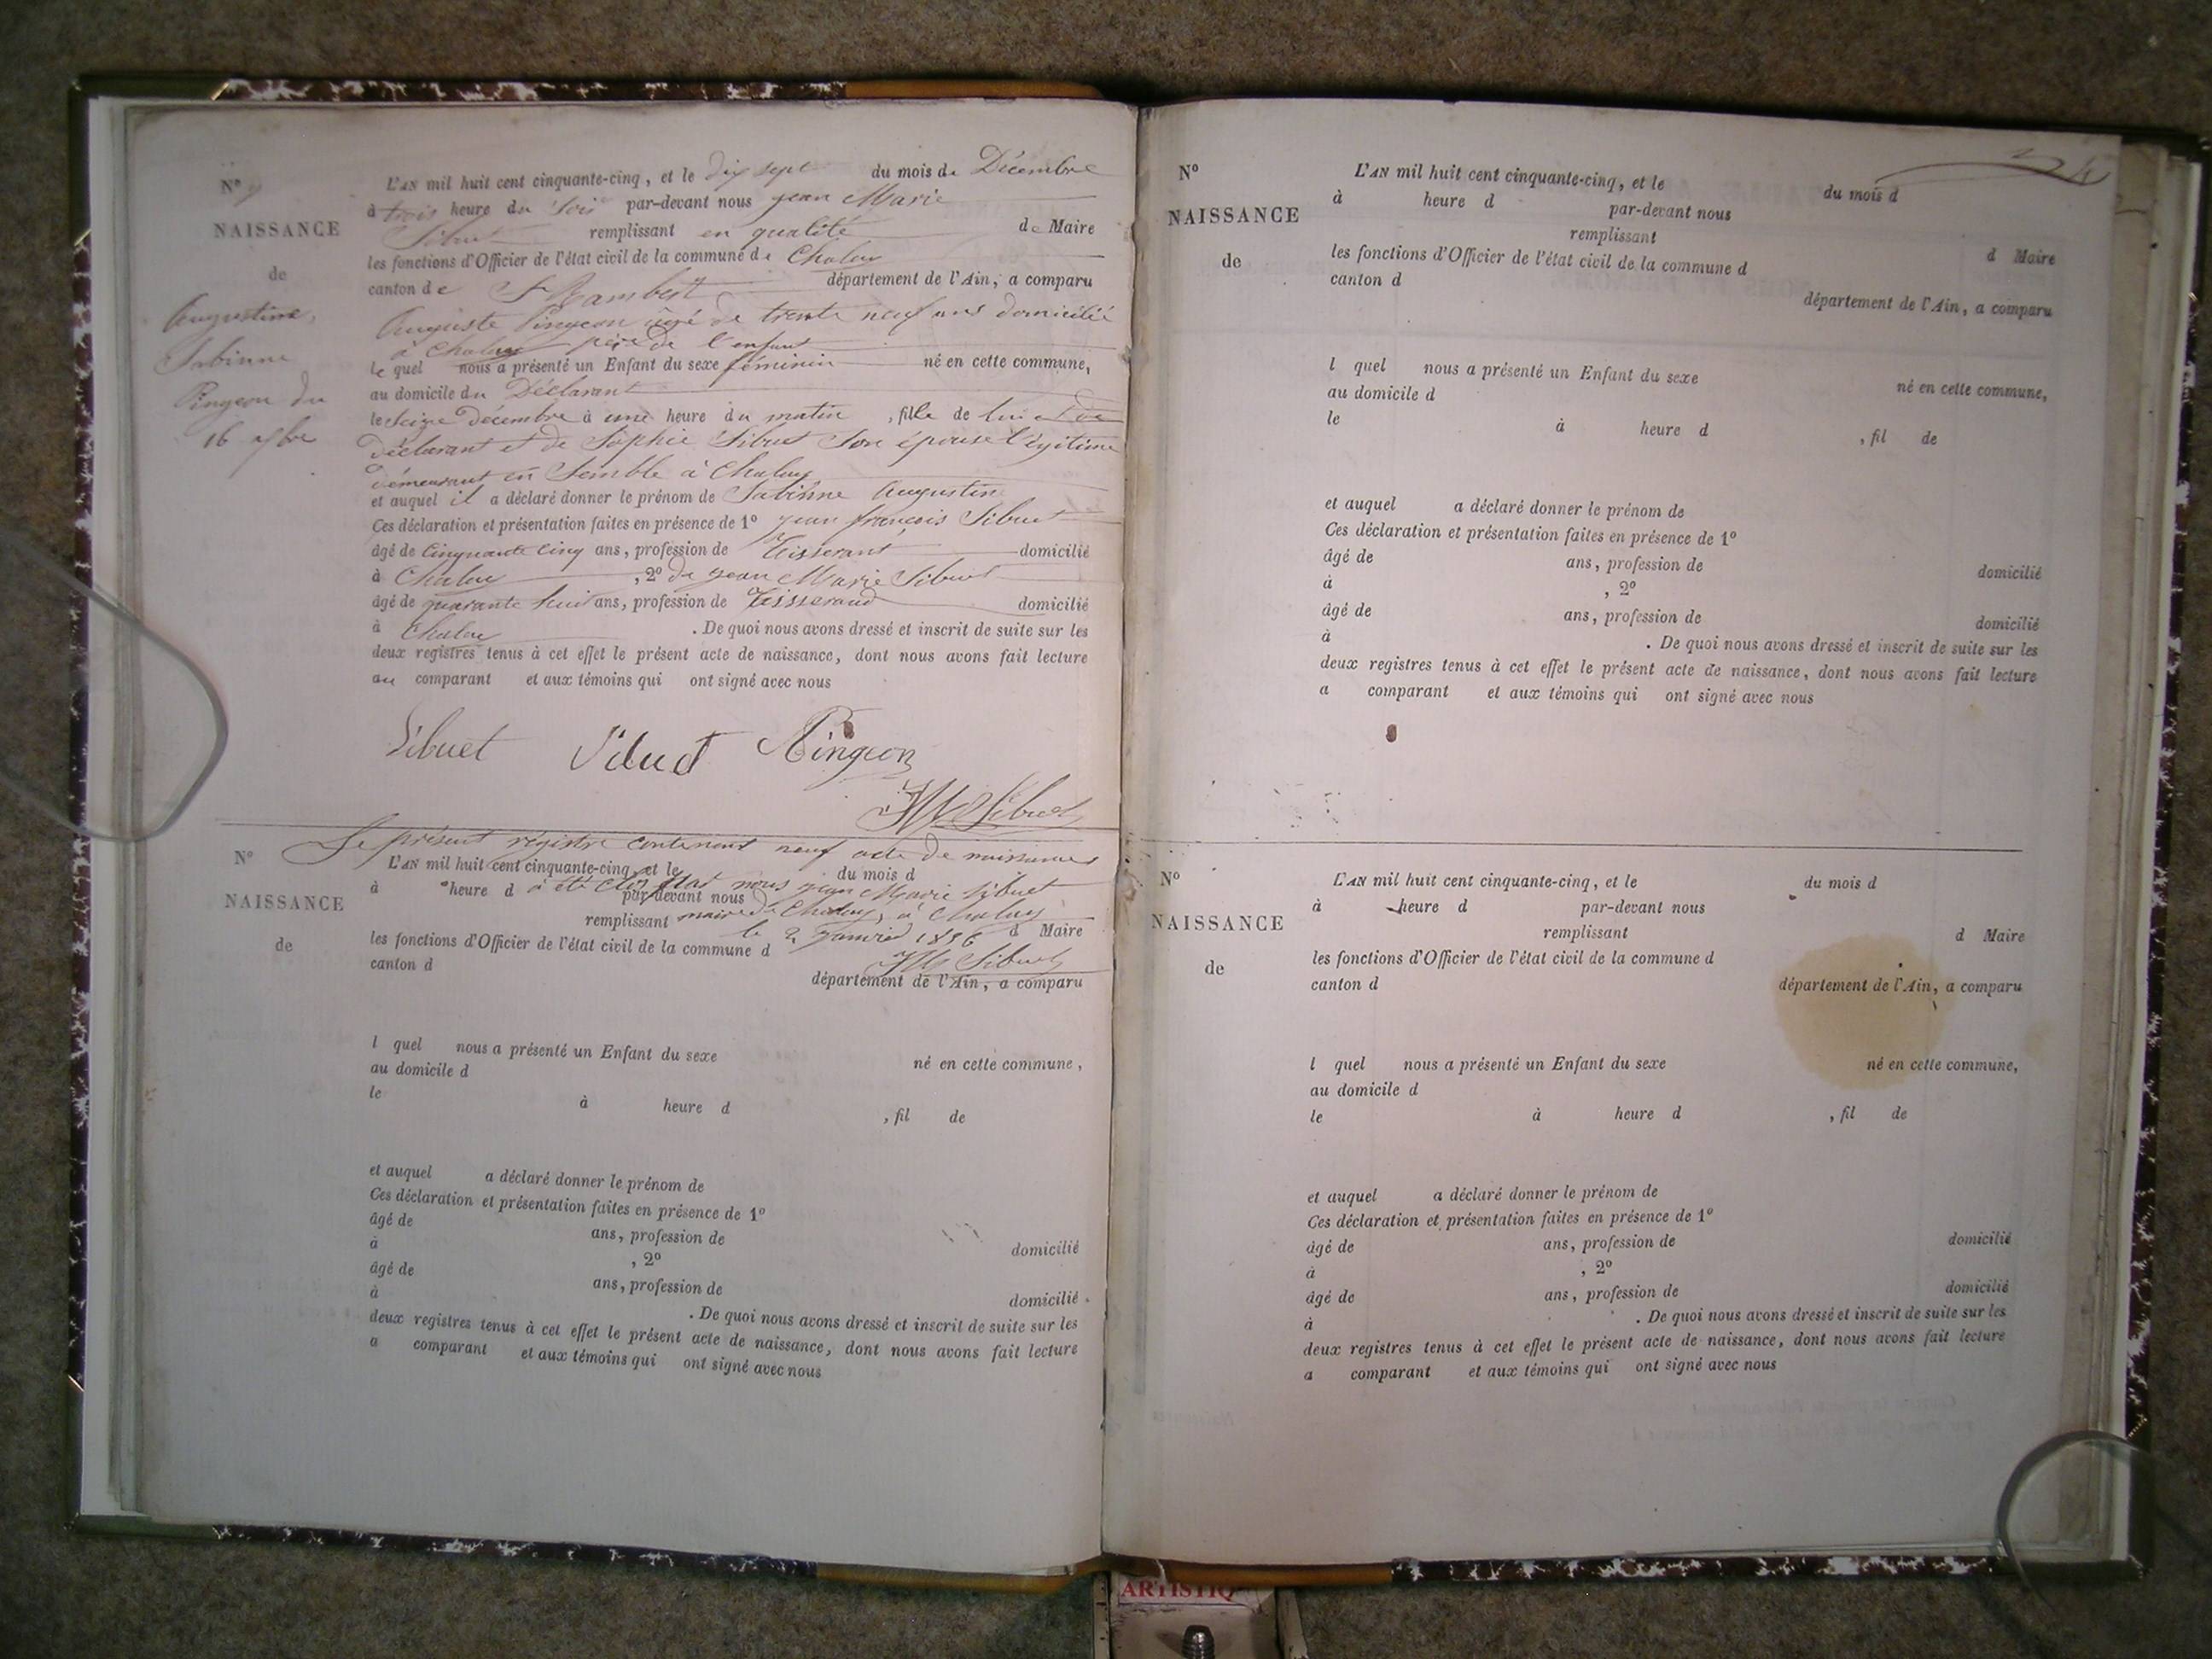 N° 9
NAISSANCE
de
Augustine,
Sabinne
Pingeon du
16 Xbre
L'AN mil huit cent cinquante-cinq, et le dix sept du mois de Décembre
à trois heure du Soir par-devant nous jean Marie
Sibuet remplissant en qualité de Maire
les fonctions d'Officier de l'état civil de la commune de Chaley
canton de St Rambert département de l'Ain, a comparu
Auguste Pingeon âgé de trente neuf ans domicilié
à Chaley père de l'enfant
le quel nous a présenté un Enfant du sexe féminin né en cette commune,
au domicile du Déclarant
le Seize Décembre à une heure du matin, fille de lui
déclarant et de Sophie Sibuet Son épouse légitime
demeurant en Semble à Chaley
et auquel il a déclaré donner le prénom de Sabinne Augustine
Ces déclaration et présentation faites en présence de 1° jean françois Sibuet
âgé de Cinquante Cinq ans, profession de Tisserant domicilié
à Chaley, 2° de jean Marie Sibuet
âgé de quarante huit ans, profession de Tisserand domicilié
à Chaley. De quoi nous avons dressé et inscrit de suite sur les
deux registres tenus à cet effet le présent acte de naissance, dont nous avons fait lecture
au comparant et aux témoins qui ont signé avec nous
Sibuet Sibuet Pingeon
JM Sibuet
Le présent régistre contenant neuf acte de naissances
a été clos par nous jean Marie Sibuet
maire de Chaley, à Chaley
le 2 janvier 1856
JM Sibuet
N°
NAISSANCE
de
L'AN mil huit cent cinquante-cinq, et le du mois d
à heure d par-devant nous
remplissant d Maire
les fonctions d'Officier de l'état civil de la commune d
canton d département de l'Ain, a comparu
l quel nous a présenté un Enfant du sexe né en cette commune,
au domicile d
le à heure d , fil de
et auquel a déclaré donner le prénom de
Ces déclaration et présentation faites en présence de 1°
âgé de ans, profession de domicilié
à , 2°
âgé de ans, profession de domicilié
à . De quoi nous avons dressé et inscrit de suite sur les
deux registres tenus à cet effet le présent acte de naissance, dont nous avons fait lecture
a comparant et aux témoins qui ont signé avec nous
N°
NAISSANCE
de
L'AN mil huit cent cinquante-cinq, et le du mois d
à heure d par-devant nous
remplissant d Maire
les fonctions d'Officier de l'état civil de la commune d
canton d département de l'Ain, a comparu
l quel nous a présenté un Enfant du sexe né en cette commune,
au domicile d
le à heure d , fil de
et auquel a déclaré donner le prénom de
Ces déclaration et présentation faites en présence de 1°
âgé de ans, profession de domicilié
à , 2°
âgé de ans, profession de domicilié
à . De quoi nous avons dressé et inscrit de suite sur les
deux registres tenus à cet effet le présent acte de naissance, dont nous avons fait lecture
a comparant et aux témoins qui ont signé avec nous
N°
NAISSANCE
de
L'AN mil huit cent cinquante-cinq, et le du mois d
à heure d par-devant nous
remplissant d Maire
les fonctions d'Officier de l'état civil de la commune d
canton d département de l'Ain, a comparu
l quel nous a présenté un Enfant du sexe né en cette commune,
au domicile d
le à heure d , fil de
et auquel a déclaré donner le prénom de
Ces déclaration et présentation faites en présence de 1°
âgé de ans, profession de domicilié
à , 2°
âgé de ans, profession de domicilié
à . De quoi nous avons dressé et inscrit de suite sur les
deux registres tenus à cet effet le présent acte de naissance, dont nous avons fait lecture
a comparant et aux témoins qui ont signé avec nous
ARTISTIQ